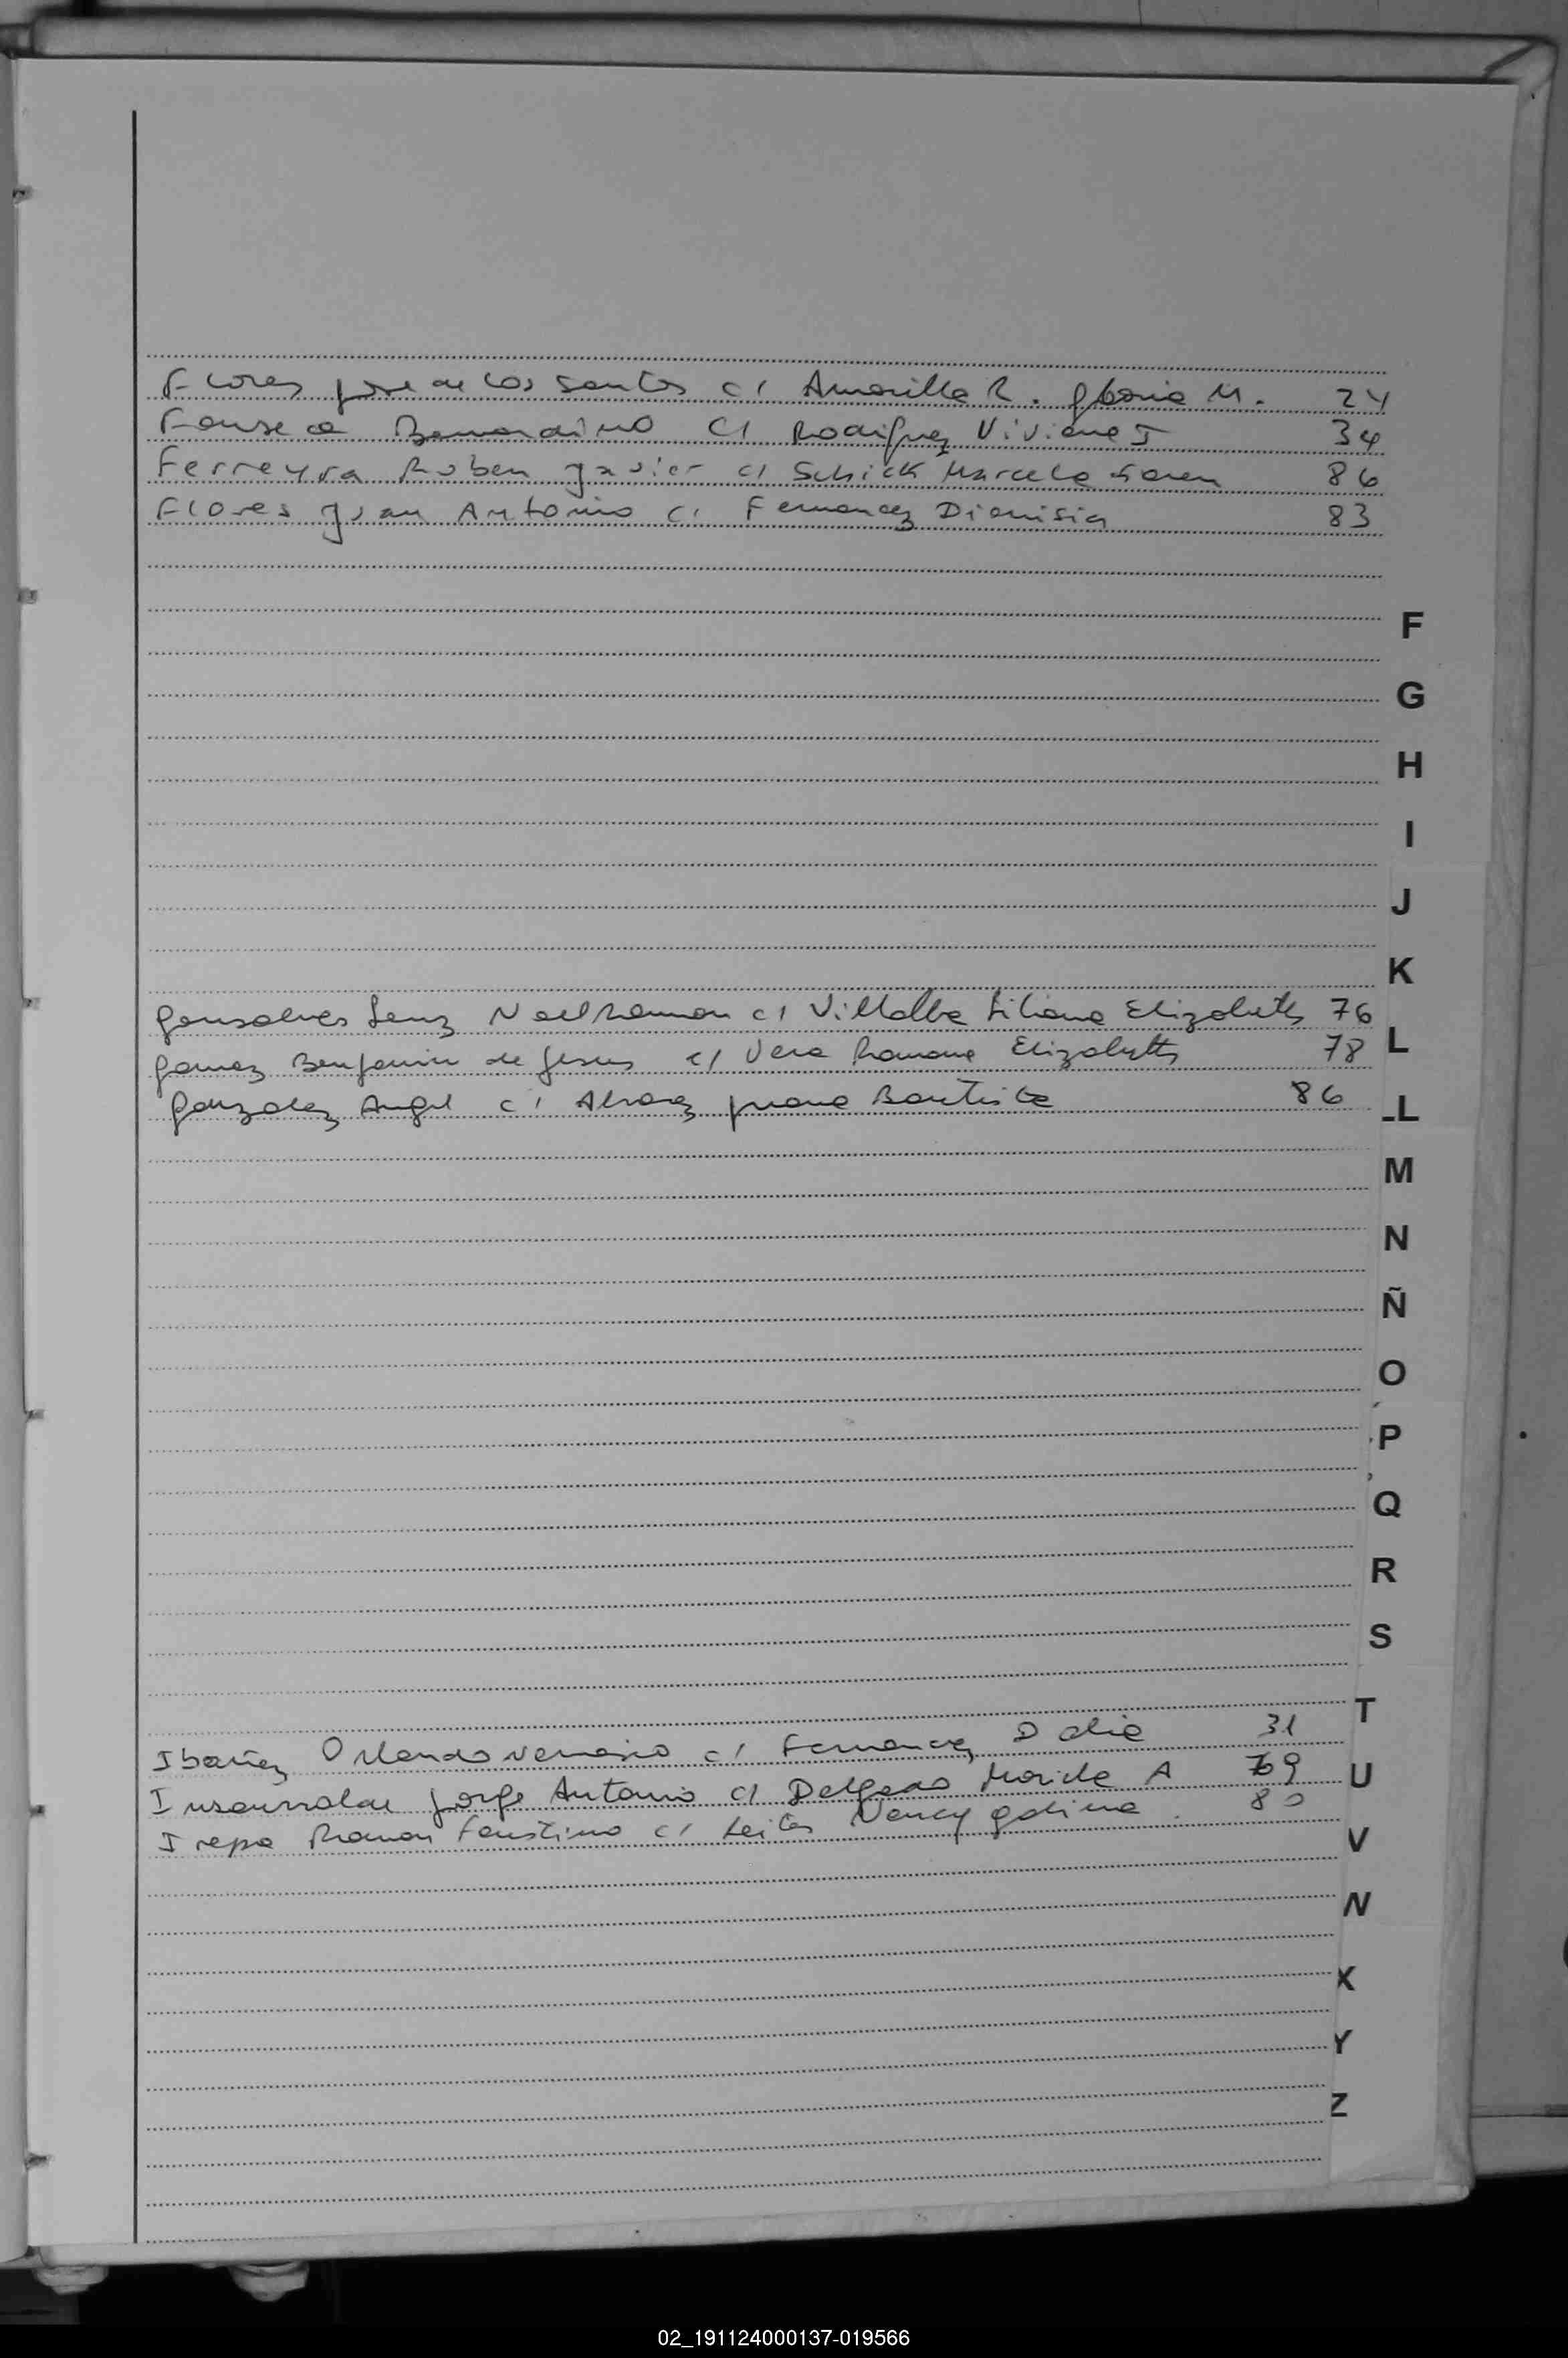 Flores Jose de los Santos c/ Amarilla R. Gloria M. 24
Fonseca Bernardino c/ Rodriguez Viviana I 34
Ferreyra Ruben Javier c/ Schick Marcela Karen 86
Flores Juan Antonio c/ Fernandez Dionisia 83
F
G
H
I
J
K
Gonsalves Lenz Noel Ramon c/ Villalba Liliana Elizabeth 76
L
Gomez Benjamin de Jesus c/ Vera Romana Elizabeth 78
Gonzalez Angel c/ Juana Bautista 86
LL
M
N
Ñ
O
P
Q
R
S
T
Ibañez Orlando c/ Fernandez Delia 31
Insaurralde Jorge Antonio c/ Delgado A 69
U
Irepa Ramon Faustino c/ Leites Nancy 80
V
W
X
Y
Z
02_191124000137-019566